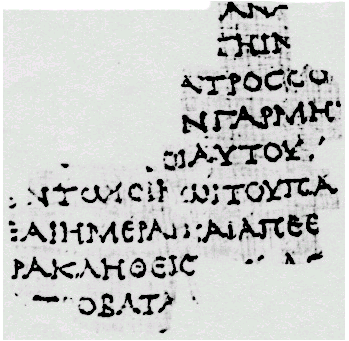 ΑΝ
ΤΗΙΝ
ΑΤΡΟϹϹΟΥ
ΝΓΑΡΜΗ
ΟΙΑΥΤΟΥ
ΝΤΩΙΟΙΚΩΙΤΟΥΠΑ
ΑΙΗΜΕΡΑΙΚΑΙΑΠΕΘ
ΡΑΚΛΗΘΕΙϹ
ΟΒΑΤΑ